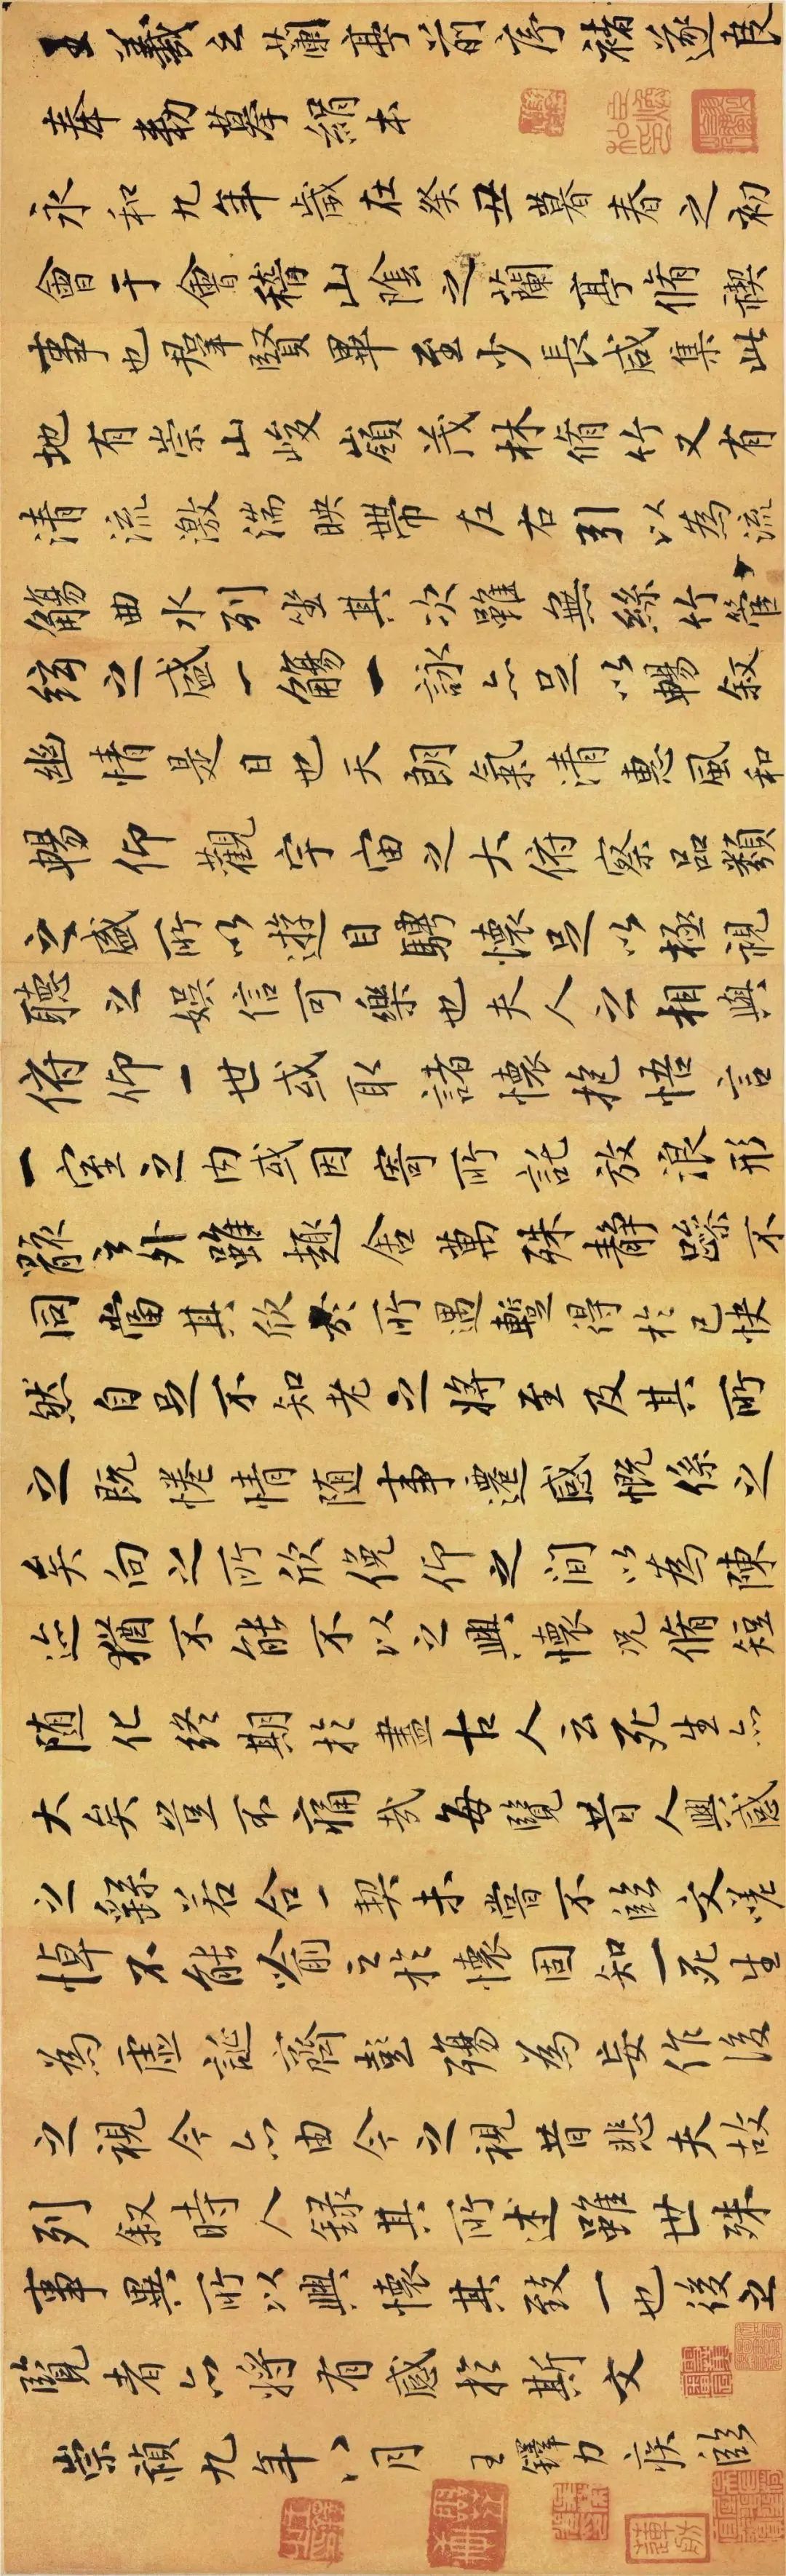 王羲之蘭亭前序褚遂良
奉勅摹絹本
永和九年歲在癸丑暮春之初
會于會稽山陰之蘭亭脩禊
事也羣賢畢至少長咸集此
地有崇山峻嶺茂林脩竹又有
清流激湍映帶左右引以為流
觴曲水列坐其次雖無絲竹管
絃之盛一觴一詠亦足以暢叙
幽情是日也天朗氣清惠風和
暢仰觀宇宙之大俯察品類
之盛所以遊目騁懷足以極視
聽之娛信可樂也夫人之相與
俯仰一世或取諸懷抱悟言
一室之内或因寄所託放浪形
骸之外雖趣舍萬殊静躁不
同當其欣於所遇暫得於己快
然自足不知老之將至及其所
之既惓情随事遷感慨係之
矣向之所欣俛仰之間以為陳
迹猶不能不以之興懷况脩短
随化終期於盡古人云死生亦
大矣豈不痛哉每覽昔人興感
之繇若合一契未嘗不臨文嗟
悼不能喻之於懷固知一死生
為虛誕齊彭殤為妄作後
之視今亦由今之視昔悲夫故
列叙時人録其所述雖世殊
事異所以興懷其致一也後之
覽者亦將有感於斯文
崇禎九年八月王鐸力疾臨